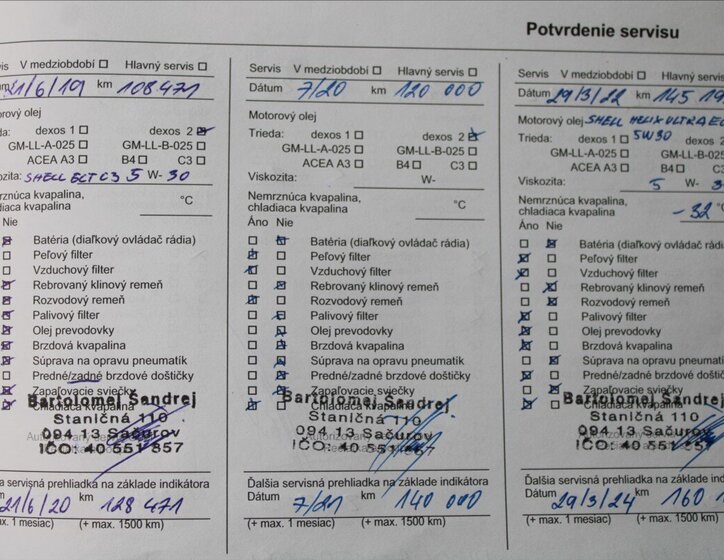 Potvrdenie servisu
vis V medziobdobí Hlavný servis
21/6/19 km 108 471
orový olej
da: dexos 1 dexos 2
GM-LL-A-025 GM-LL-B-025
ACEA A3 B4 C3
kozita: SHELL ECT C3 5 W- 30
mrznúca kvapalina,
ladiaca kvapalina °C
Nie
Batéria (diaľkový ovládač rádia)
Peľový filter
Vzduchový filter
Rebrovaný klinový remeň
Rozvodový remeň
Palivový filter
Olej prevodovky
Brzdová kvapalina
Súprava na opravu pneumatík
Predné/zadné brzdové doštičky
Zapaľovacie sviečky
Chladiaca kvapalina
Bartolomej Šandrej
Staničná 110
094 13 Sačurov
IČO: 40 551 857
a servisná prehliadka na základe indikátora
21/6/20 km 128 471
max. 1 mesiac) (+ max. 1500 km)
Servis V medziobdobí Hlavný servis
Dátum 7/20 km 120 000
Motorový olej
Trieda: dexos 1 dexos 2
GM-LL-A-025 GM-LL-B-025
ACEA A3 B4 C3
Viskozita: W-
Nemrznúca kvapalina,
chladiaca kvapalina °C
Áno Nie
Batéria (diaľkový ovládač rádia)
Peľový filter
Vzduchový filter
Rebrovaný klinový remeň
Rozvodový remeň
Palivový filter
Olej prevodovky
Brzdová kvapalina
Súprava na opravu pneumatík
Predné/zadné brzdové doštičky
Zapaľovacie sviečky
Chladiaca kvapalina
Bartolomej Šandrej
Staničná 110
094 13 Sačurov
IČO: 40 551 857
Ďalšia servisná prehliadka na základe indikátora
Dátum 7/21 km 140 000
(+ max. 1 mesiac) (+ max. 1500 km)
Servis V medziobdobí Hlavný servis
Dátum 29/3/22 km 145 19
Motorový olej SHELL HELIX ULTRA EC
Trieda: dexos 1 5W30 dexos 2
GM-LL-A-025 GM-LL-B-02
ACEA A3 B4 C3
Viskozita: 5 W- 3
Nemrznúca kvapalina,
chladiaca kvapalina -32 °C
Áno Nie
Batéria (diaľkový ovládač rádia)
Peľový filter
Vzduchový filter
Rebrovaný klinový remeň
Rozvodový remeň
Palivový filter
Olej prevodovky
Brzdová kvapalina
Súprava na opravu pneumatík
Predné/zadné brzdové doštičky
Zapaľovacie sviečky
Chladiaca kvapalina
Bartolomej Šandrej
Staničná 110
094 13 Sačurov
IČO: 40 551 857
Ďalšia servisná prehliadka na základe indikátora
Dátum 29/3/24 km 160 1
(+ max. 1 mesiac) (+ max. 1500 km)